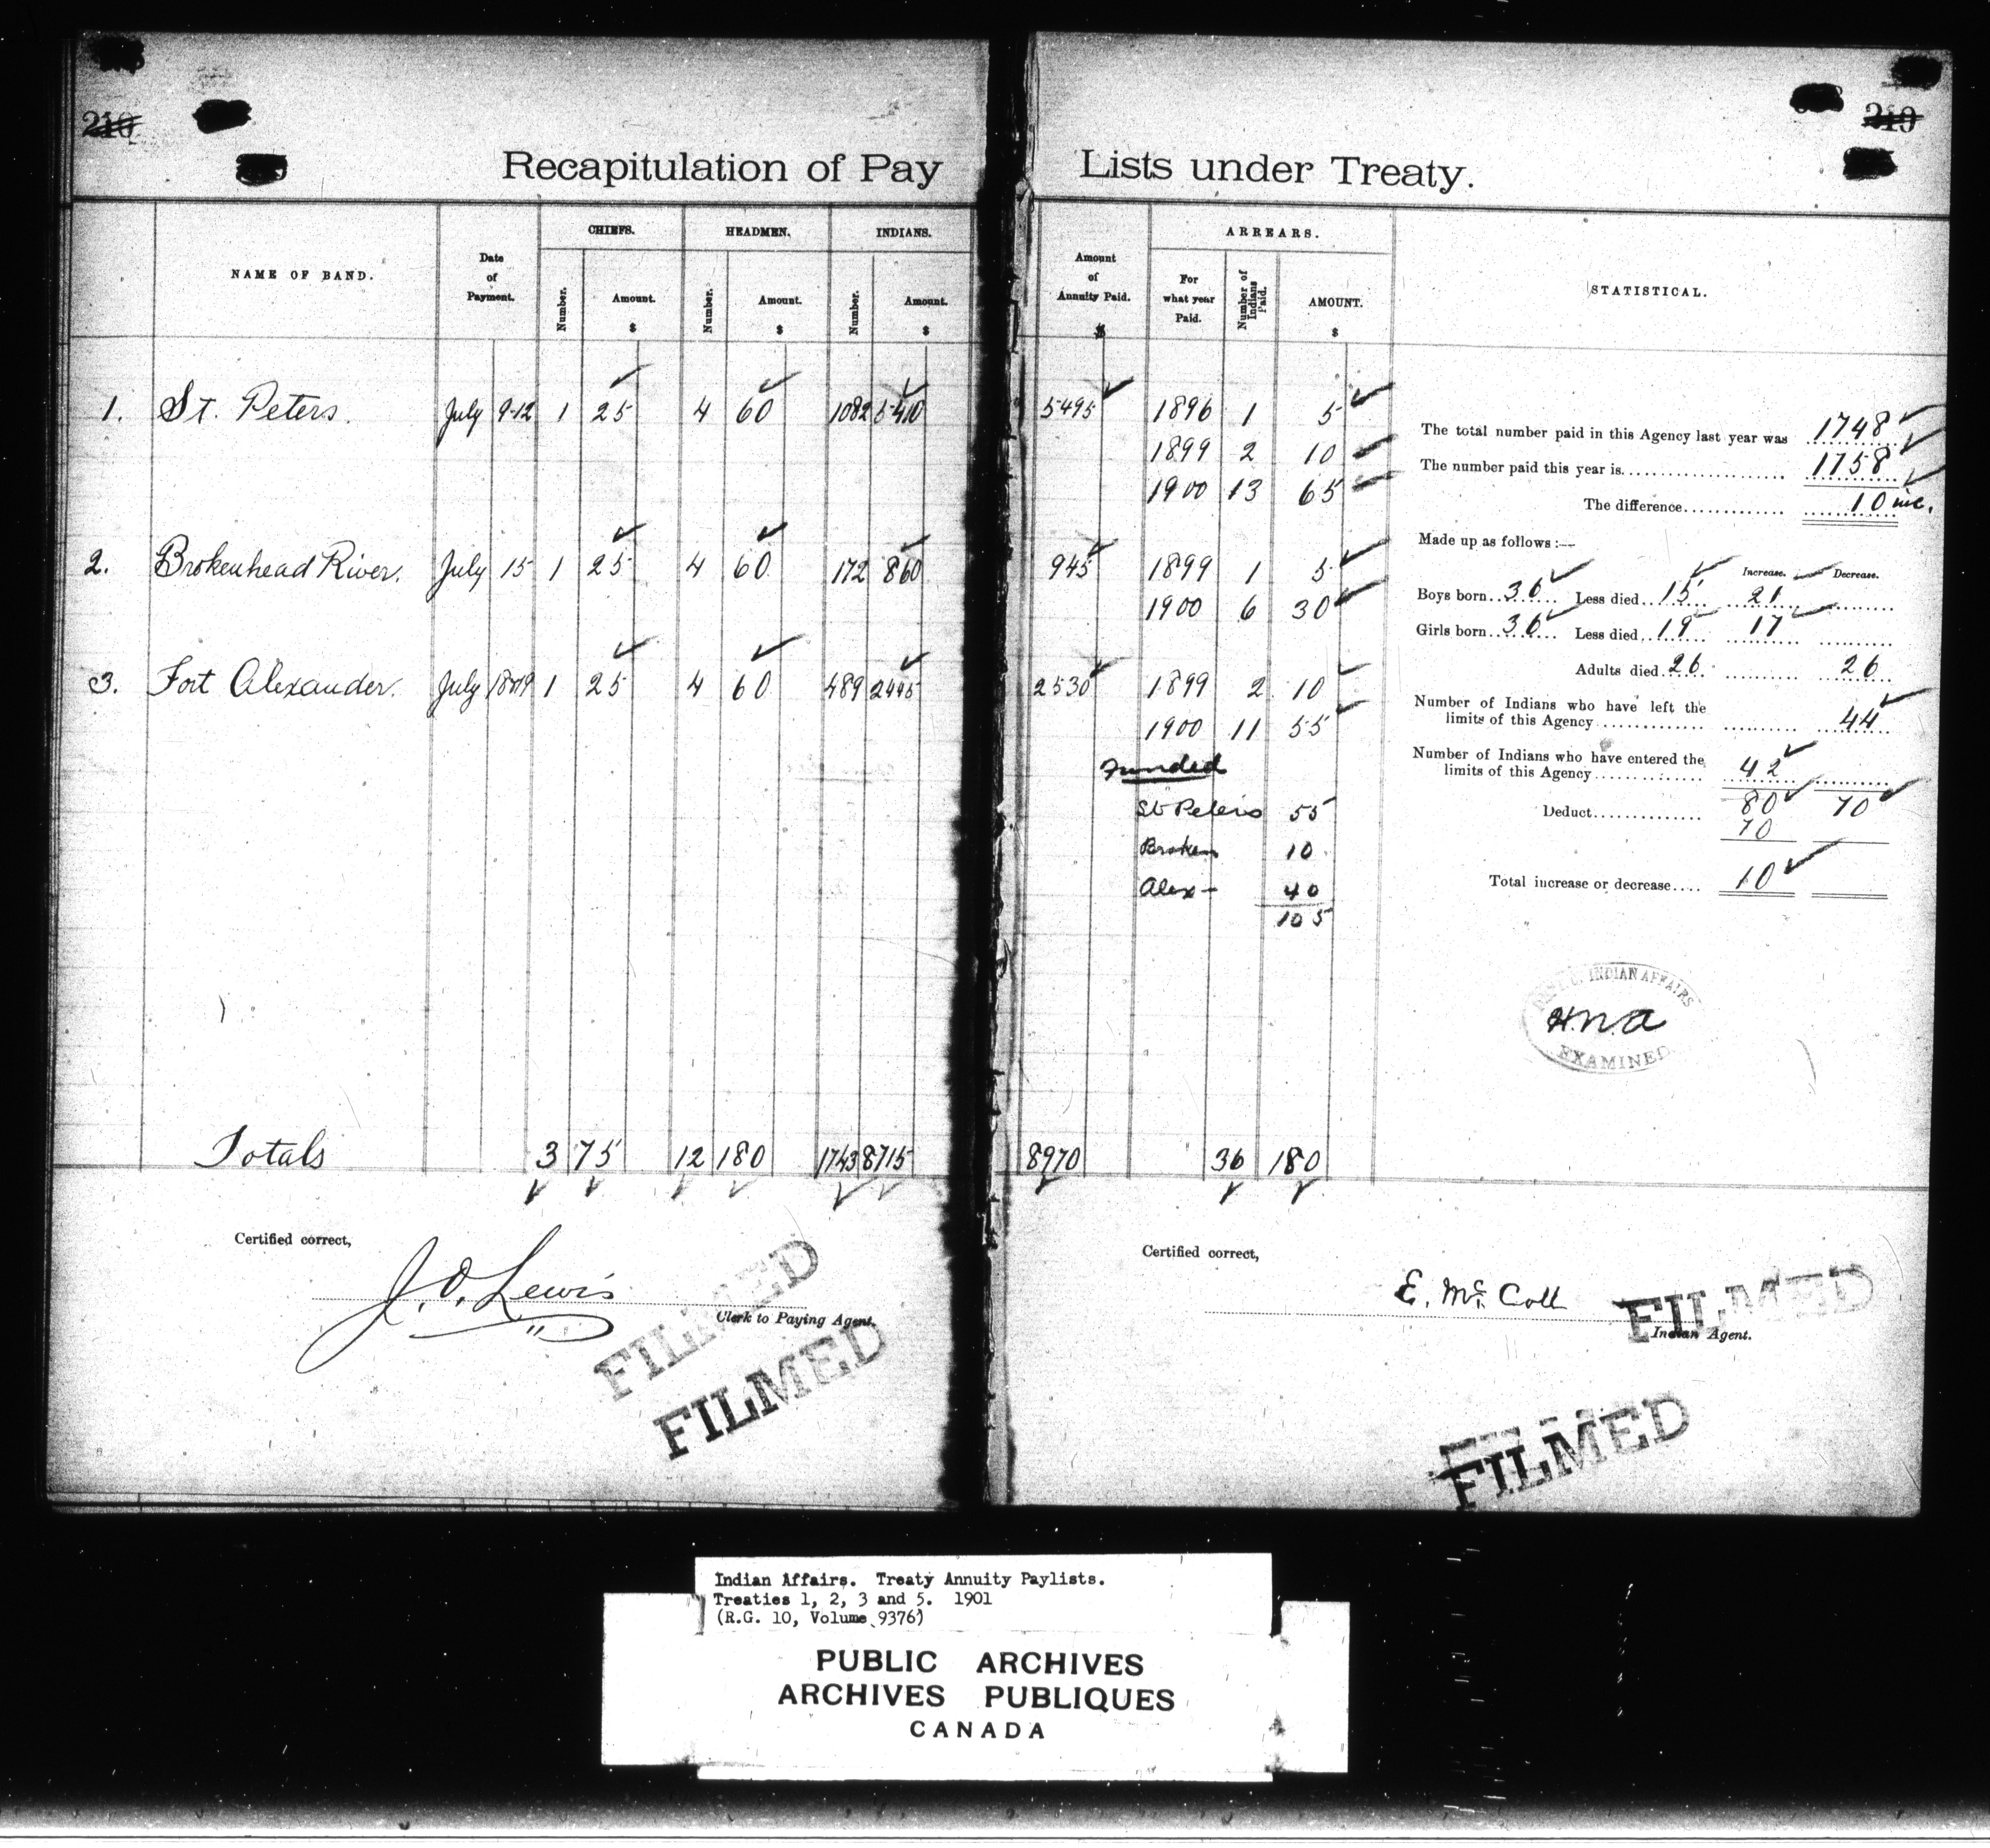 210
219
Recapitulation of Pay Lists under Treaty.
NAME OF BAND. Date of Payment. CHIEFS. Number. Amount. $ HEADMEN. Number. Amount. $ INDIANS. Number. Amount. $ Amount of Annuity Paid. $ ARREARS. For what year Paid. Number of Indians Paid. AMOUNT. $ STATISTICAL.
1. St. Peters. July 9-12 1 25 4 60 1082 5410 5495 1896 1 5
1899 2 10
1900 13 65
2. Brokenhead River. July 15 1 25 4 60 172 860 945 1899 1 5
1900 6 30
3. Fort Alexander. July 18-19 1 25 4 60 489 2445 2530 1899 2 10
1900 11 55
Funded
St Peters 55
Broken 10
Alex - 40
105
Totals 3 75 12 180 1743 8715 8970 36 180
The total number paid in this Agency last year was 1748
The number paid this year is 1758
The difference 10 inc.
Made up as follows:—
Increase. Decrease.
Boys born 36 Less died 15 21
Girls born 36 Less died 19 17
Adults died 26 26
Number of Indians who have left the
limits of this Agency 44
Number of Indians who have entered the
limits of this Agency 42
Deduct 80 70
70
Total increase or decrease 10
DEPT. INDIAN AFFAIRS
H.N.A
EXAMINED
Certified correct,
J. O. Lewis
Clerk to Paying Agent.
FILMED
FILMED
Certified correct,
E. McColl
Indian Agent.
FILMED
FILMED
Indian Affairs. Treaty Annuity Paylists.
Treaties 1, 2, 3 and 5. 1901
(R.G. 10, Volume 9376)
PUBLIC ARCHIVES
ARCHIVES PUBLIQUES
CANADA